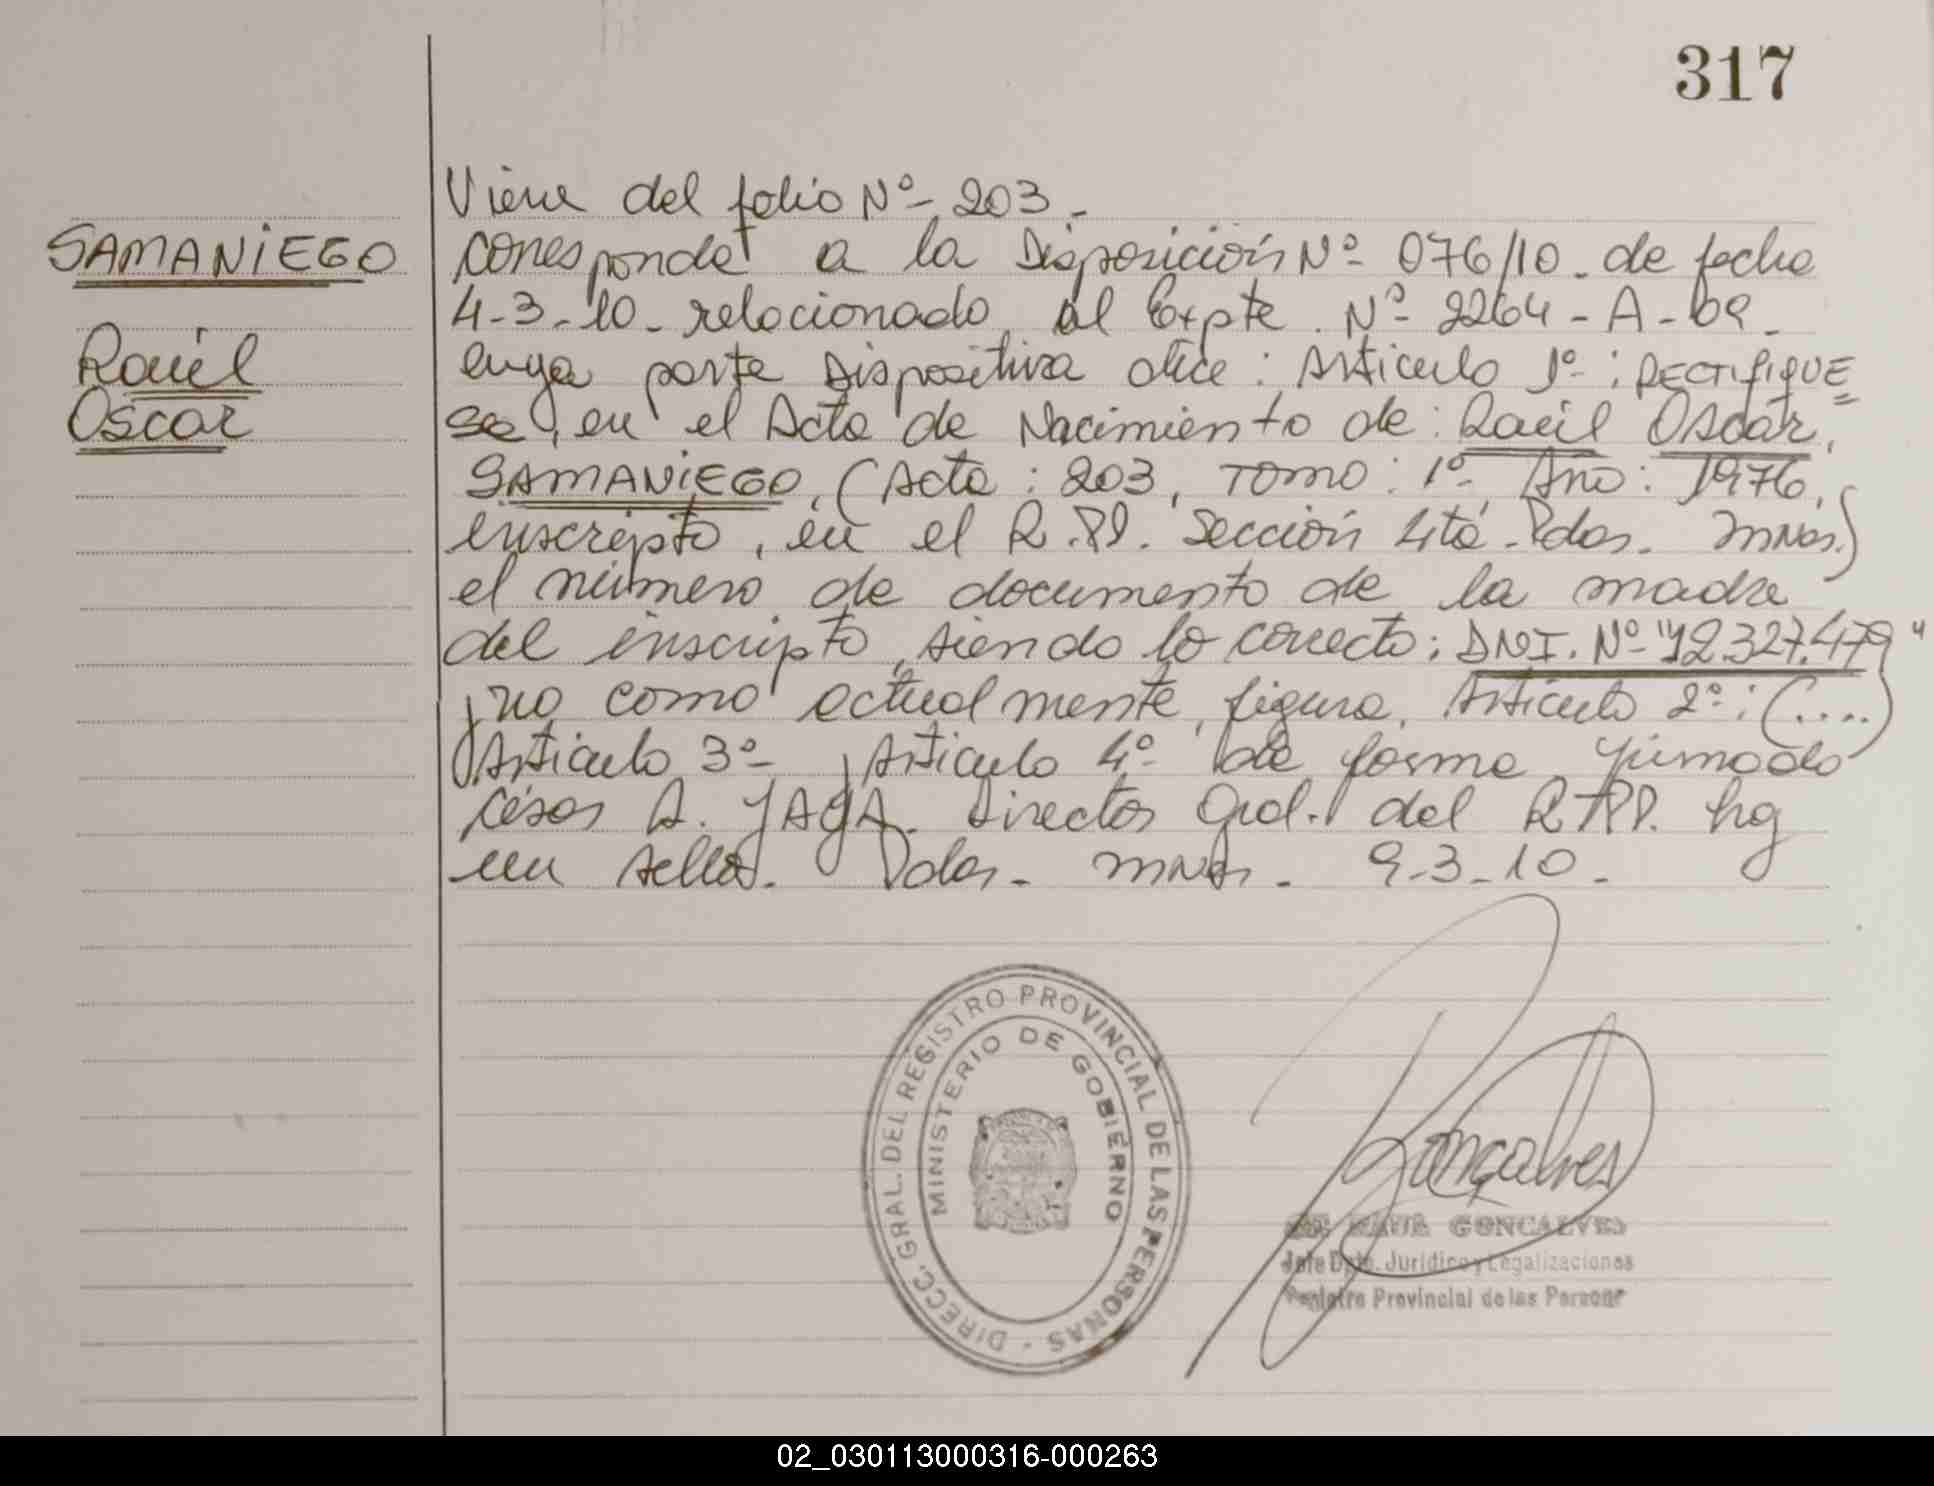 317
Viene del folio Nº 203 -
SAMANIEGO
Raúl
Oscar
corresponde a la Disposición Nº 076/10 - de fecha
4-3-10 - relacionado al Expte. Nº 2264 - A - 09 -
cuya parte Dispositiva dice: Artículo 1º: RECTIFIQUE=
se, en el Acta de Nacimiento de: Raúl Oscar,
SAMANIEGO, (Acta: 203, Tomo: 1º Año: 1976,
inscripto, en el R.P.P. Sección 4ta - Pdas. Mnes.)
el número de documento de la madre
del inscripto, siendo lo correcto: DNI. Nº "12.327.479"
y no como actualmente figura. Artículo 2º: (....)
Artículo 3º y Artículo 4º de forma, firmado
César A. Director Gral. del R.P.P. hay
un sello. Pdas. Mnes. 9-3-10 -
DIRECC. GRAL. DEL REGISTRO PROVINCIAL DE LAS PERSONAS -
MINISTERIO DE GOBIERNO
Gonçalves
GONCALVES
Jefe Dpto. Jurídico y Legalizaciones
Registro Provincial de las Personas
02_030113000316-000263